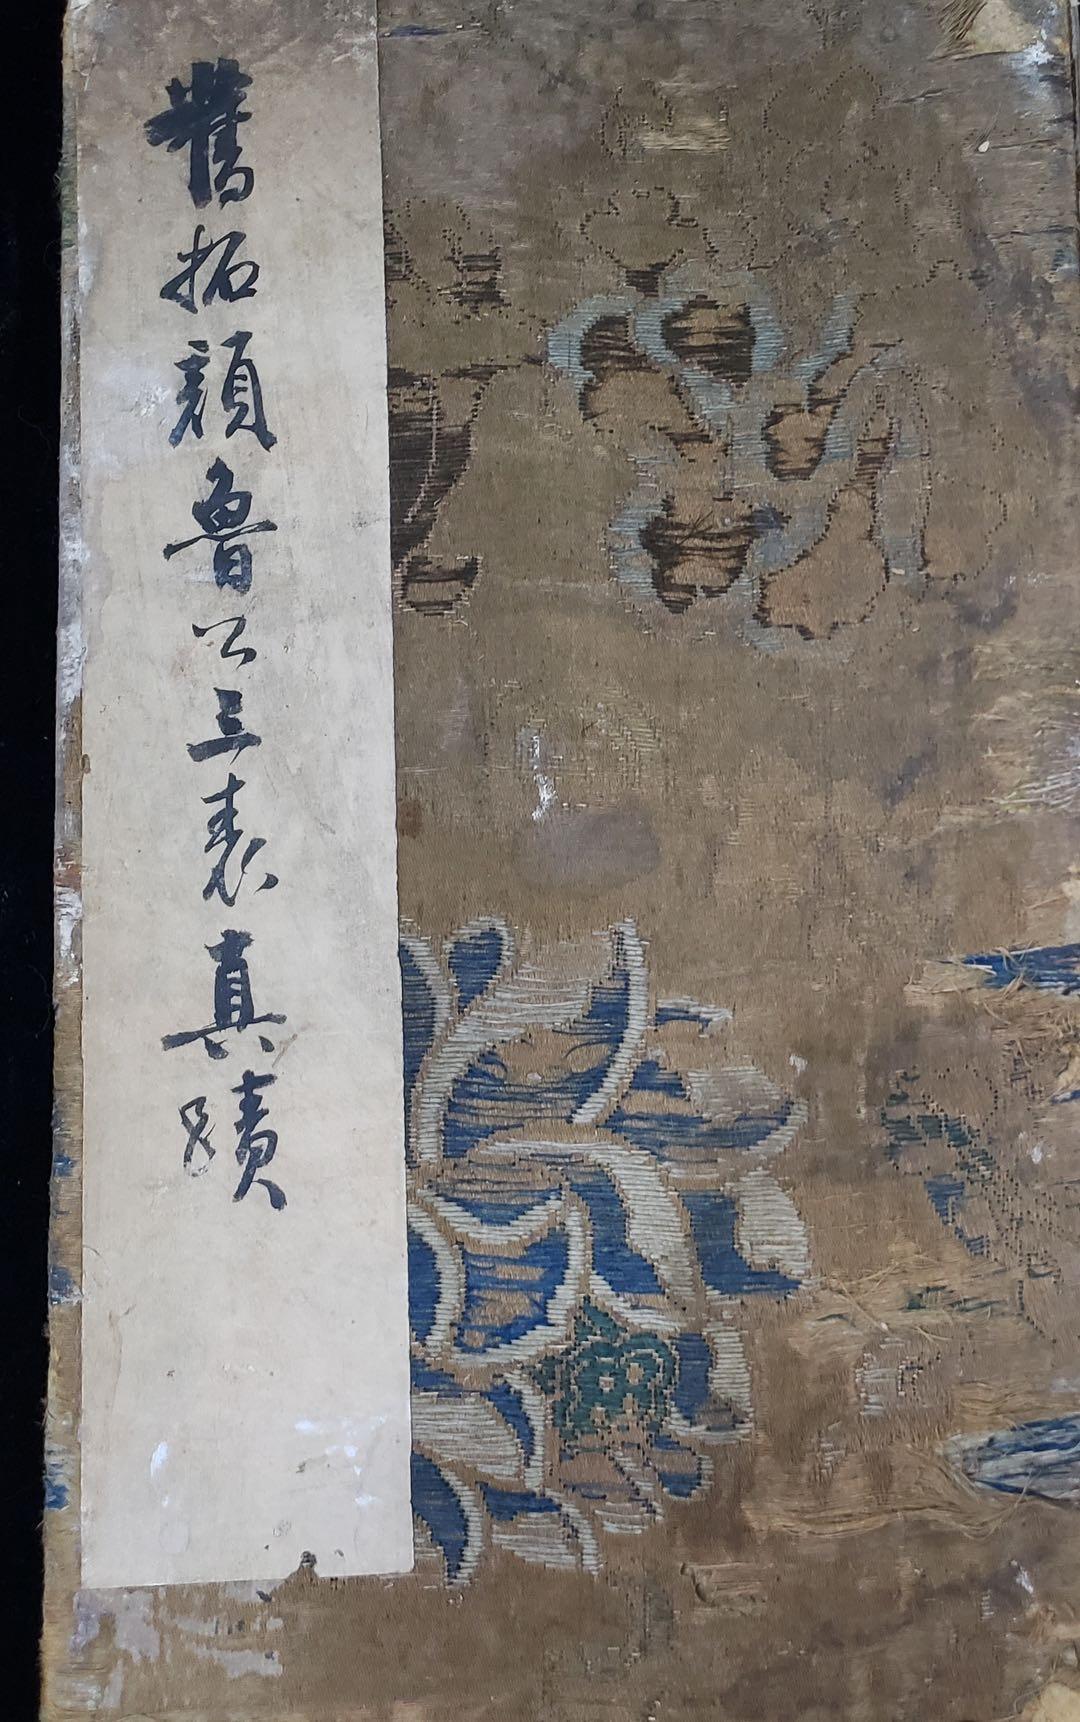 舊拓顏魯公三表真蹟